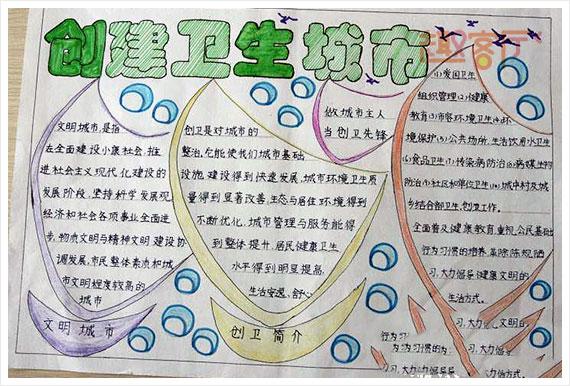 创建卫生城市
趣客厅
文明城市,是指
在全面建设小康社会,推
进社会主义现代化建设的
发展阶段,坚持科学发展观
经济和社会各项事业全面进
步,物质文明与精神文明建设协
调发展,市民整体素质和城
市文明程度较高的
城市
文明城市
创卫是对城市的
整治,它能使我们城市基础
设施建设得到快速发展,城市环境卫生质
量得到显著改善,生态与居住环境得到
不断优化,城市管理与服务能得
到整体提升,居民健康卫生
水平得到明显提高,
生活安逸、舒心
创卫简介
做城市主人
当创卫先锋
(1)爱国卫生
组织管理(2)健康
教育(3)市容环境卫生(4)环
境保护(5)公共场所、生活饮用水卫生
(6)食品卫生(7)传染病防治(8)病媒生物
防治(9)社区和单位卫生(10)城中村及城
乡结合部卫生,创卫工作。
全面普及健康教育,重视公民基础
行为习惯的培养,革除陈规陋
习,大力倡导健康文明的
生活方式。
习,大力 文明的
行为习
习惯的培
习,大力倡导